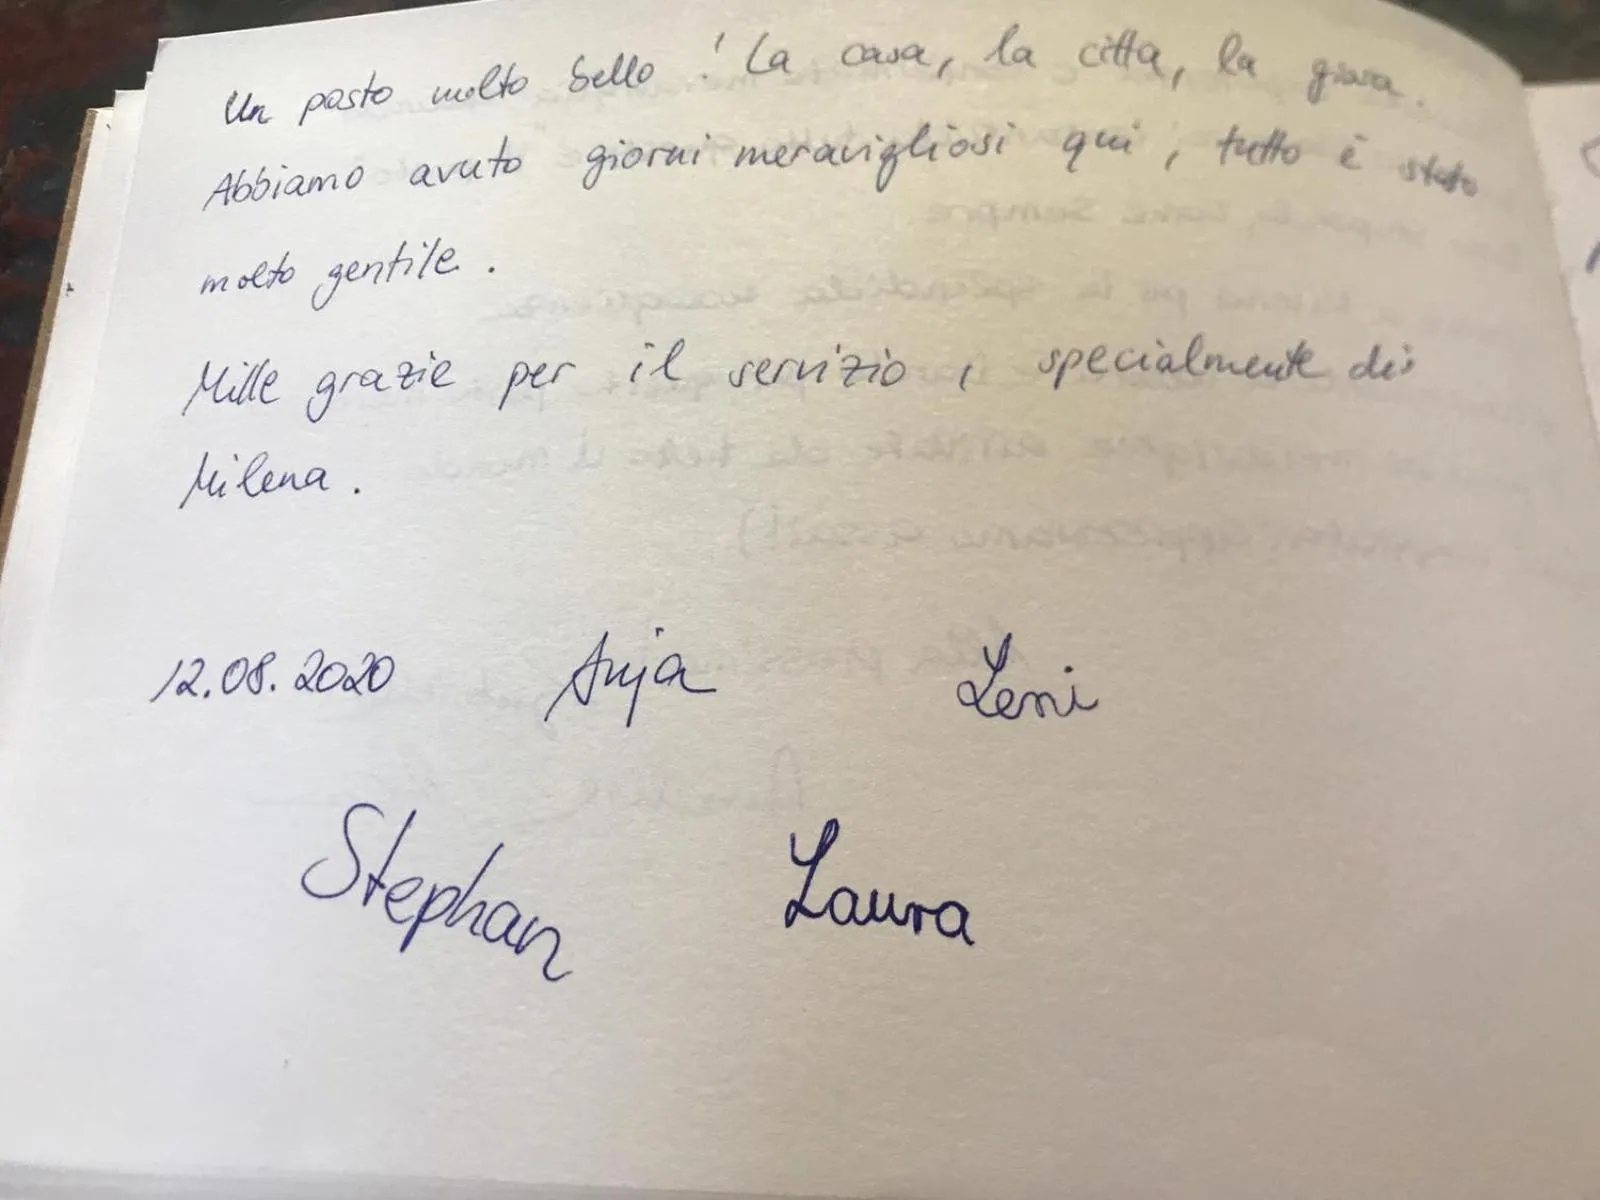 Un posto molto bello! La casa, la citta, la giava.
Abbiamo avuto giorni meravigliosi qui, tutto è stato
molto gentile.
Mille grazie per il servizio, specialmente di
Milena.
12.08.2020 Anja Leni
Stephan Laura